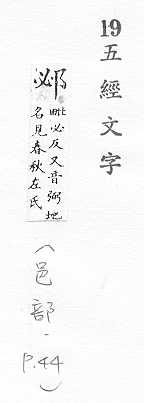 19五經文字
邲
毗必反又音弼地
名見春秋左氏
(邑部-P.44)